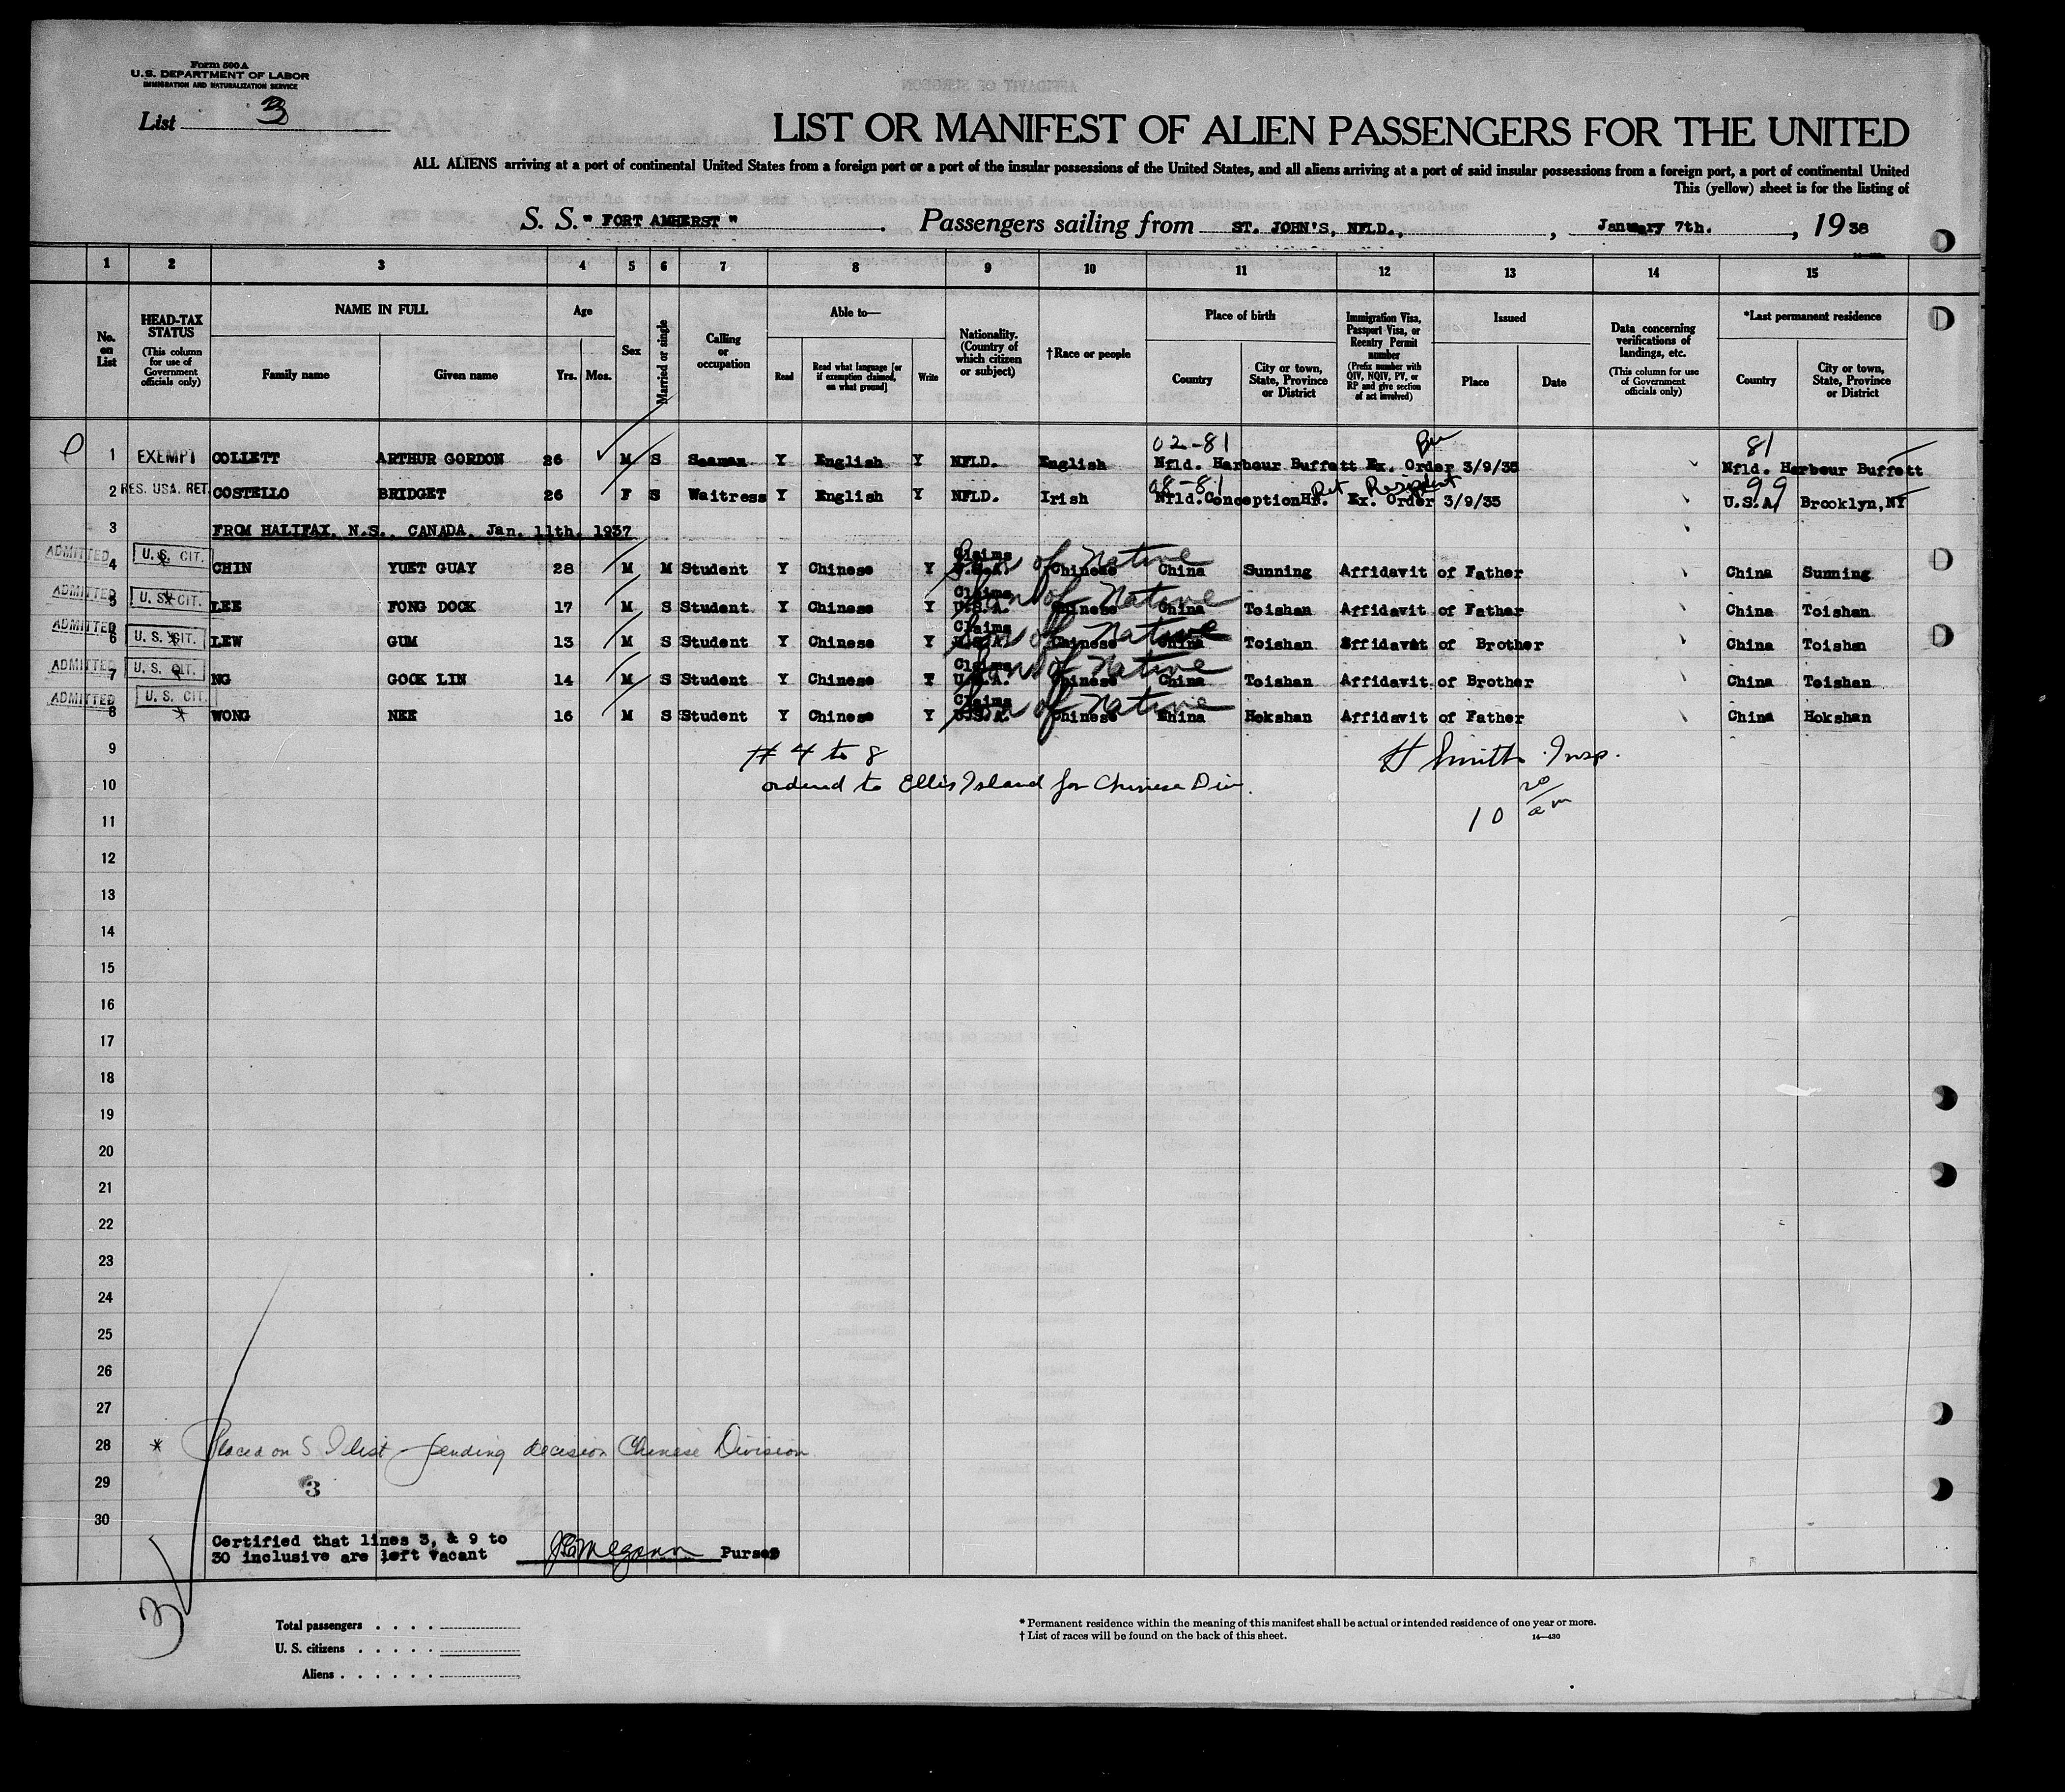 Form 500 A
U.S. DEPARTMENT OF LABOR
IMMIGRATION AND NATURALIZATION SERVICE
List 3
LIST OR MANIFEST OF ALIEN PASSENGERS FOR THE UNITED
ALL ALIENS arriving at a port of continental United States from a foreign port or a port of the insular possessions of the United States, and all aliens arriving at a port of said insular possessions from a foreign port, a port of continental United
This (yellow) sheet is for the listing of
S. S. " FORT AMHERST " . Passengers sailing from ST. JOHN'S, NFLD., , January 7th. , 19 38
1 2 3 4 5 6 7 8 9 10 11 12 13 14 15
No. on List
HEAD-TAX STATUS
(This column for use of Government officials only)
NAME IN FULL
Family name
Given name
Age
Yrs. Mos.
Sex
Married or single
Calling or occupation
Able to—
Read
Read what language [or if exemption claimed, on what ground]
Write
Nationality. (Country of which citizen or subject)
†Race or people
Place of birth
Country
City or town, State, Province or District
Immigration Visa, Passport Visa, or Reentry Permit number
(Prefix number with QIV, NQIV, PV, or RP and give section of act involved)
Issued
Place
Date
Data concerning verifications of landings, etc.
(This column for use of Government officials only)
*Last permanent residence
Country
City or town, State, Province or District
02-81 81
1 EXEMPT COLLETT ARTHUR GORDON 26 M S Seaman Y English Y NFLD. English Nfld. Harbour Buffett Ex. Order 3/9/35 Nfld. Harbour Buffett
08-81 Ret Resident 99
2 RES. USA. RET. COSTELLO BRIDGET 26 F S Waitress Y English Y NFLD. Irish Nfld. Conception Hr. Ex. Order 3/9/35 U.S.A. Brooklyn, NY
3 FROM HALIFAX, N.S., CANADA, Jan. 11th. 1937
ADMITTED 4 U. S. CIT. CHIN YUET GUAY 28 M M Student Y Chinese Y Claims U.S.A. Son of Native Chinese China Sunning Affidavit of Father China Sunning
ADMITTED 5 U. S. CIT. LEE FONG DOCK 17 M S Student Y Chinese Y Claims U.S.A. Son of Native Chinese China Toishan Affidavit of Father China Toishan
ADMITTED 6 U. S. CIT. LEW GUM 13 M S Student Y Chinese Y Claims U.S.A. Son of Native Chinese China Toishan Affidavit of Brother China Toishn
ADMITTED 7 U. S. CIT. NG GOCK LIN 14 M S Student Y Chinese Y Claims U.S.A. Son of Native Chinese China Toishan Affidavit of Brother China Toishan
ADMITTED 8 U. S. CIT. * WONG NEE 16 M S Student Y Chinese Y Claims U.S.A. Son of Native Chinese China Hokshan Affidavit of Father China Hokshan
9 # 4 to 8 H Smith Insp.
10 ordered to Ellis Island for Chinese Div. 10 20 am
11
12
13
14
15
16
17
18
19
20
21
22
23
24
25
26
27
28 * Placed on S I list - pending decision Chinese Division
29 3
30
Certified that lines 3, & 9 to
30 inclusive are left vacant Purser
3
Total passengers . . . .
U. S. citizens . . . . .
Aliens . . . . . .
* Permanent residence within the meaning of this manifest shall be actual or intended residence of one year or more.
† List of races will be found on the back of this sheet. 14—430